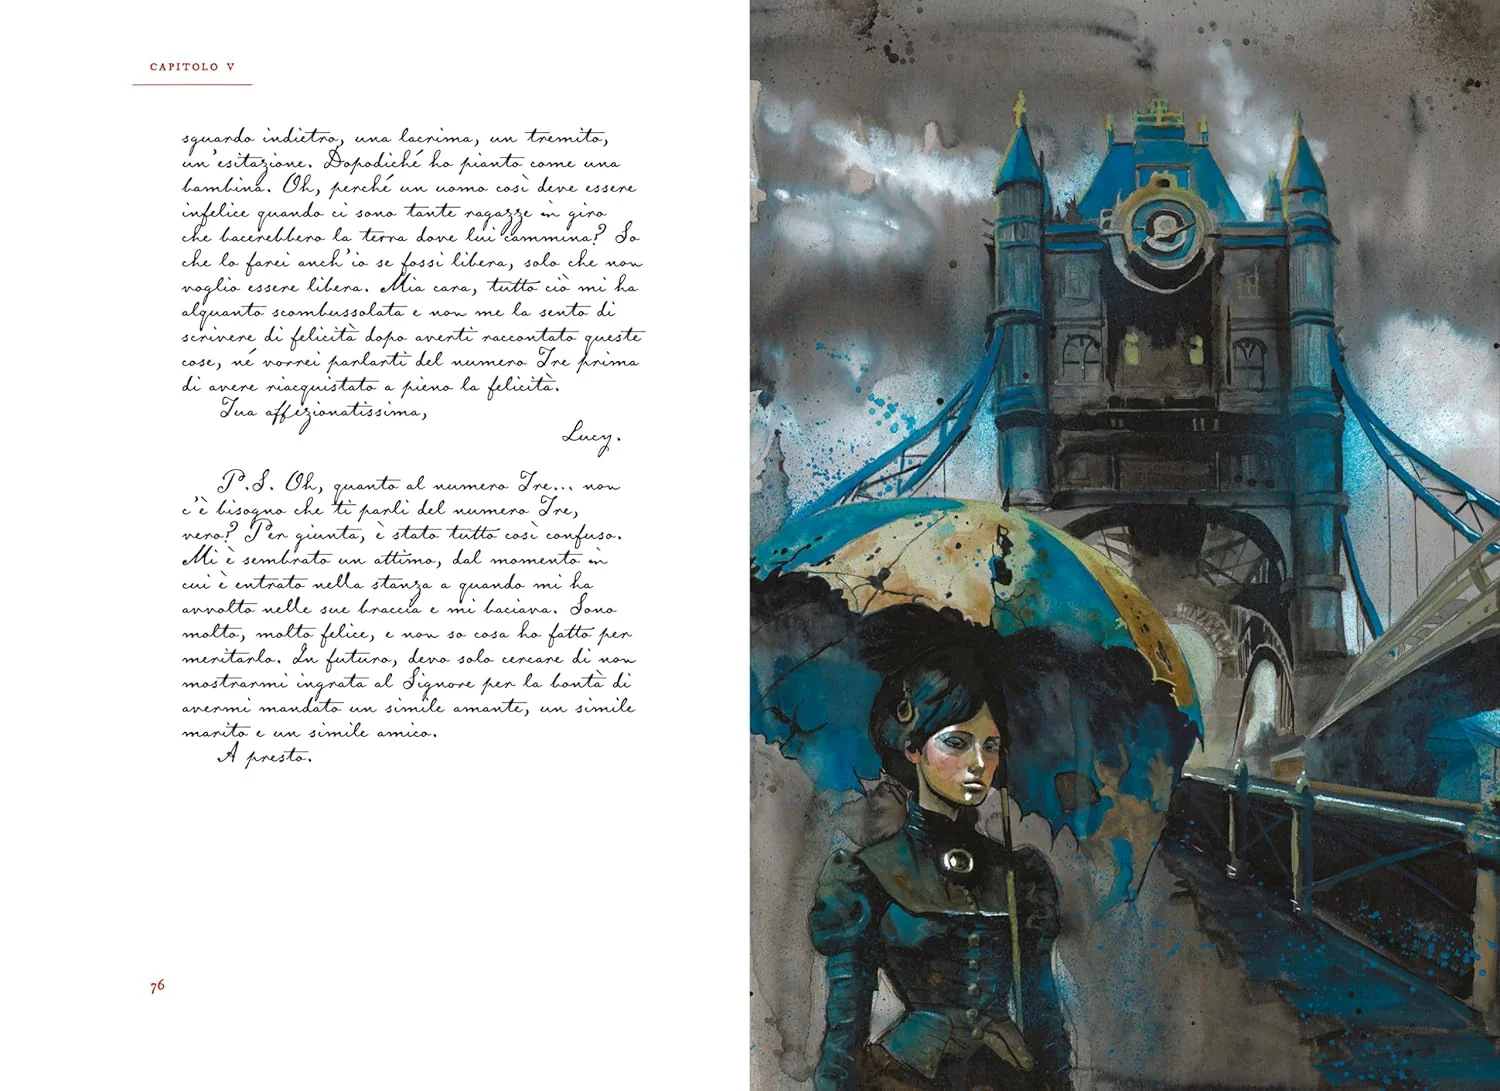 CAPITOLO V
sguardo indietro, una lacrima, un tremito,
un'esitazione. Dopodiché ho pianto come una
bambina. Oh, perché un uomo così deve essere
infelice quando ci sono tante ragazze in giro
che bacerebbero la terra dove lui cammina? So
che lo farei anch'io se fossi libera, solo che non
voglio essere libera. Mia cara, tutto ciò mi ha
alquanto scombussolata e non me la sento di
scrivere di felicità dopo averti raccontato queste
cose, né vorrei parlarti del numero Tre prima
di avere riacquistato a pieno la felicità.
Tua affezionatissima,
Lucy.
P.S. Oh, quanto al numero Tre... non
c'è bisogno che ti parli del numero Tre,
vero? Per giunta, è stato tutto così confuso.
Mi è sembrato un attimo, dal momento in
cui è entrato nella stanza a quando mi ha
avvolto nelle sue braccia e mi baciava. Sono
molto, molto felice, e non so cosa ho fatto per
meritarlo. In futuro, devo solo cercare di non
mostrarmi ingrata al Signore per la bontà di
avermi mandato un simile amante, un simile
marito e un simile amico.
A presto.
76